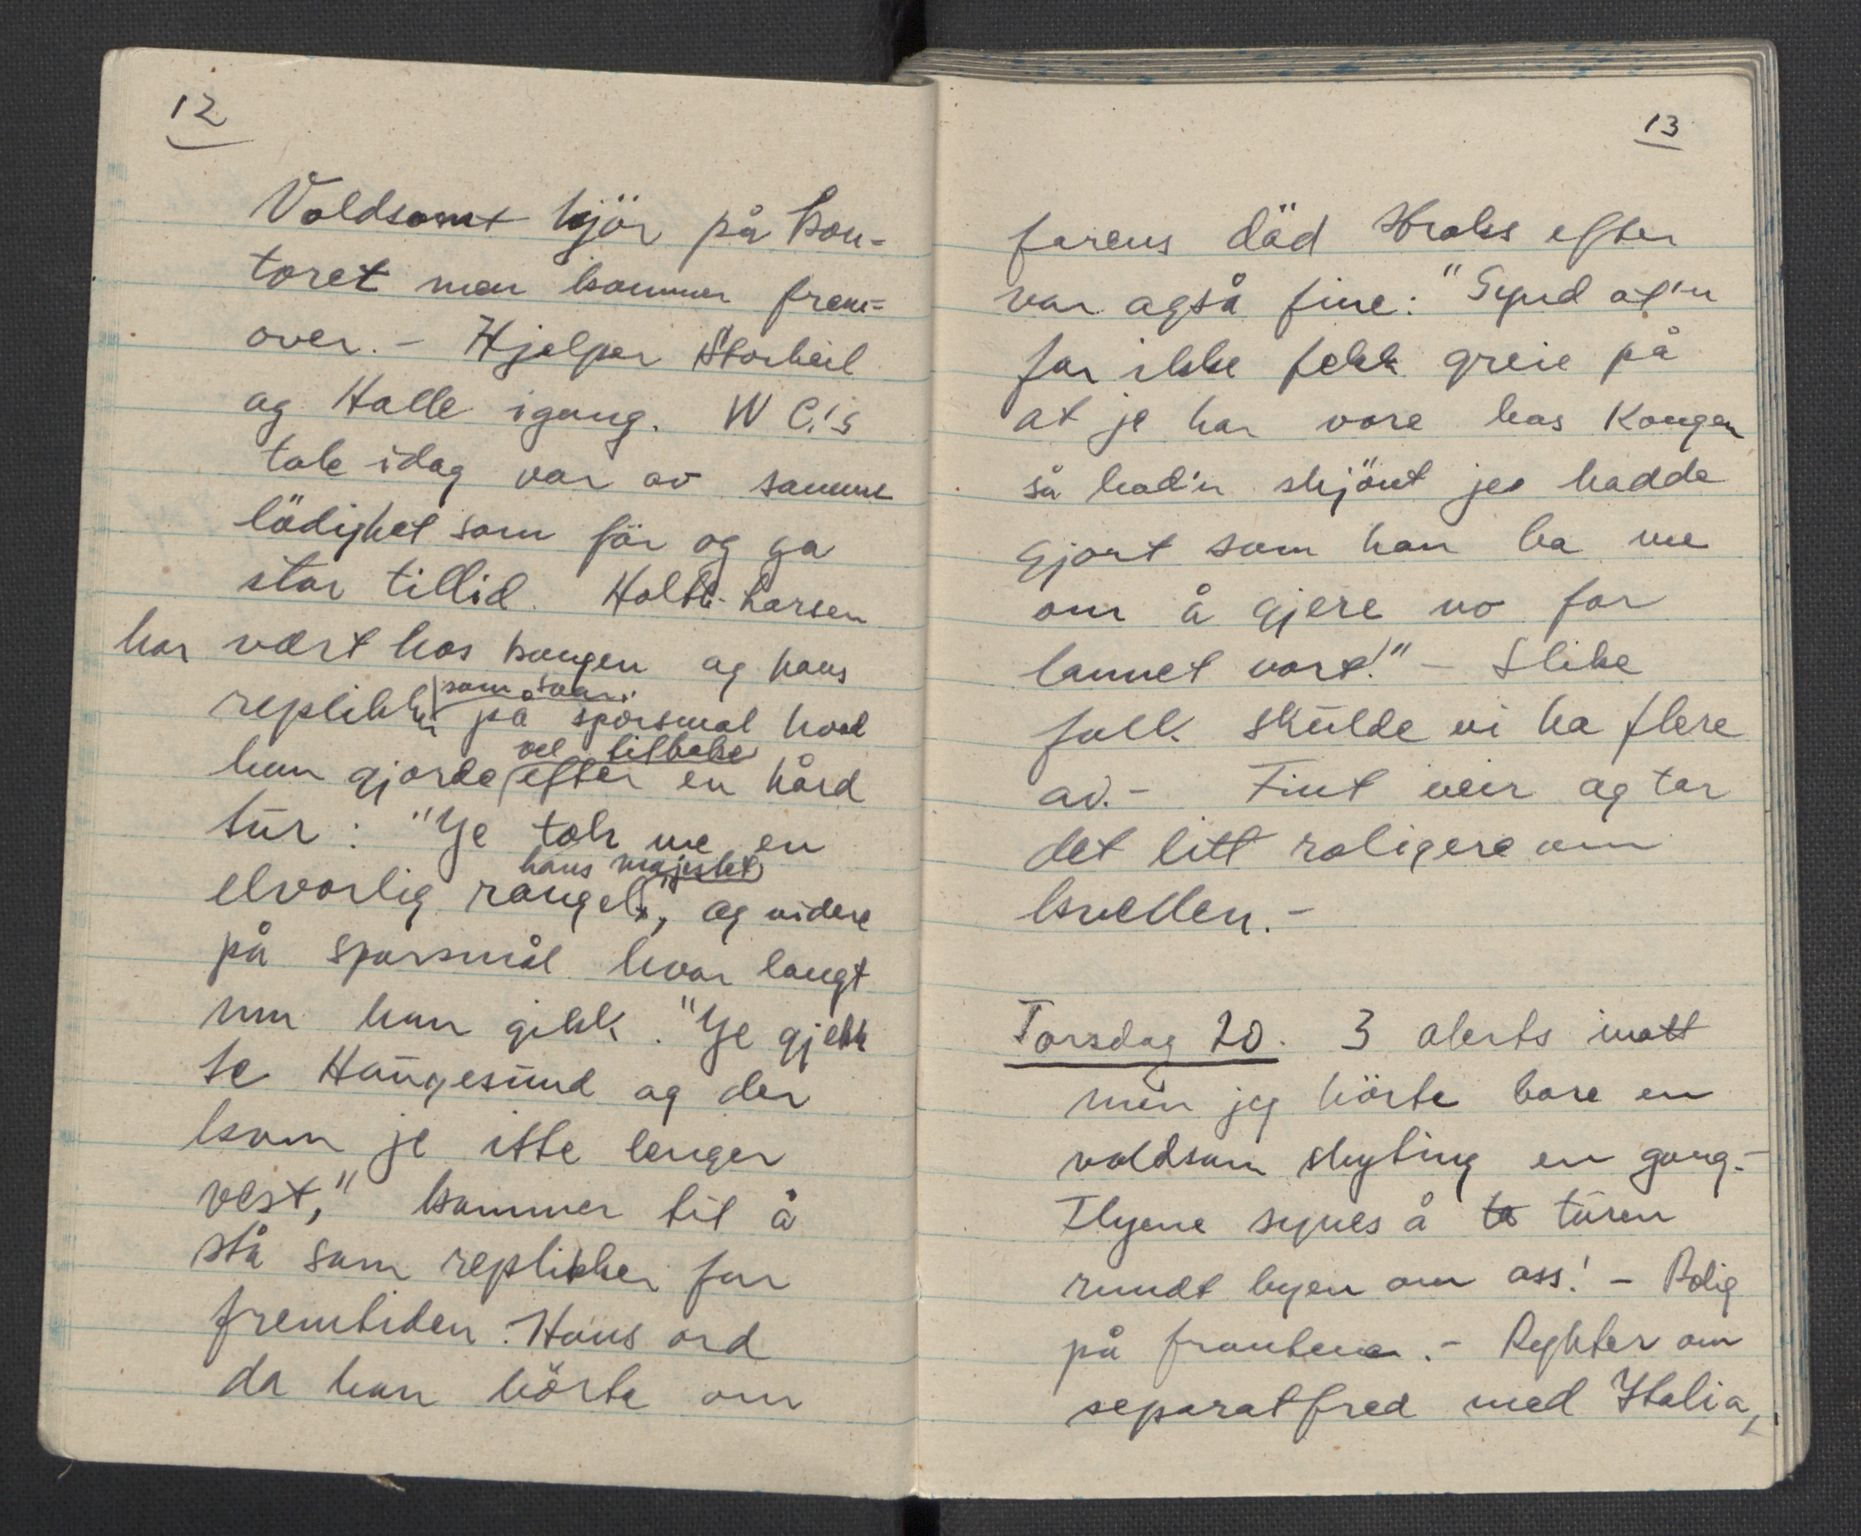 12
Voldsomt kjör på kon-
toret men kommer frem-
over. - Hjelper Storheil
og Halle igang. W C.'s
tale idag var av samme
lödighet som för og ga
stor tillid. Holth-Larsen
har vært hos kongen og hans
replikk som svar
på spörsmål hvad
han gjorde vel tilbake
efter en hård
tür: "Ye tok me en
elvorlig rangel, hans majestet", og videre
på spörsmål hvor langt
han gikk. "Ye gjekk
te Haügesünd og der
kom je itte lenger
vest," kommer til å
stå som replikker for
fremtiden. Hans ord
da han hörte om
13
farens död straks efter
var også fine: "Synd at'n
far ikke fekk greie på
at je har vore hos Kongen
så had'n skjönt jeg hadde
gjort som han ba me
om å gjere no for
lannet vort!" - Slike
folk skülde vi ha flere
av. - Fint veir og tar
det litt roligere om
kvellen. -
Torsdag 20. 3 alerts inatt
men jeg hörte bare en
voldsom skyting en gang. -
Flyene synes å ta türen
rundt byen om oss! - Rolig
på frontene. - Rykter om
separatfred med Italia,